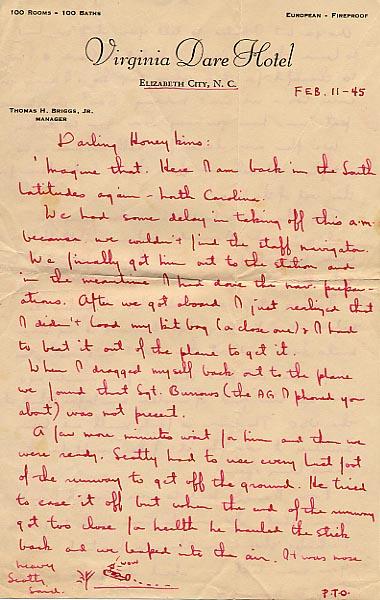 100 ROOMS - 100 BATHS
EUROPEAN - FIREPROOF
Virginia Dare Hotel
ELIZABETH CITY, N. C.
FEB. 11-45
THOMAS H. BRIGGS, JR.
MANAGER
Darling Honey kins:
Imagine that. Here I am back in the South
latitudes again - North Carolina.
We had some delay in taking off this a.m.
because we couldn't find the staff navigator.
We finally got him out to the station and
in the meantime I had done the nav. prepar-
ations. After we got aboard I just realized that
I didn't load my kit bag (a close one) & I had
to beat it out of the plane to get it.
When I dragged myself back out to the plane
we found that Sgt. Burrows (the AG I phoned you
about) was not present.
A few more minutes wait for him and then we
were ready. Scotty had to use every last foot
of the runway to get off the ground. He tried
to ease it off but when the end of the runway
got too close for health he hauled the stick
back and we leaped into the air. It was nose
heavy
Scotty
said.
wow
P.T.O.